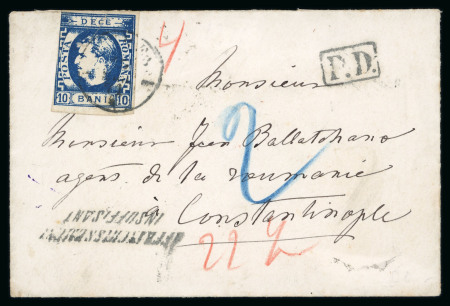 DECE
POSTA ROMANA
10 BANI 10
4
P.D.
Monsieur
Monsieur Jean Ballatchano
agent de la roumanie
à Constantinople
2
22
AFFRANCHISSEMENT
INSUFFISANT